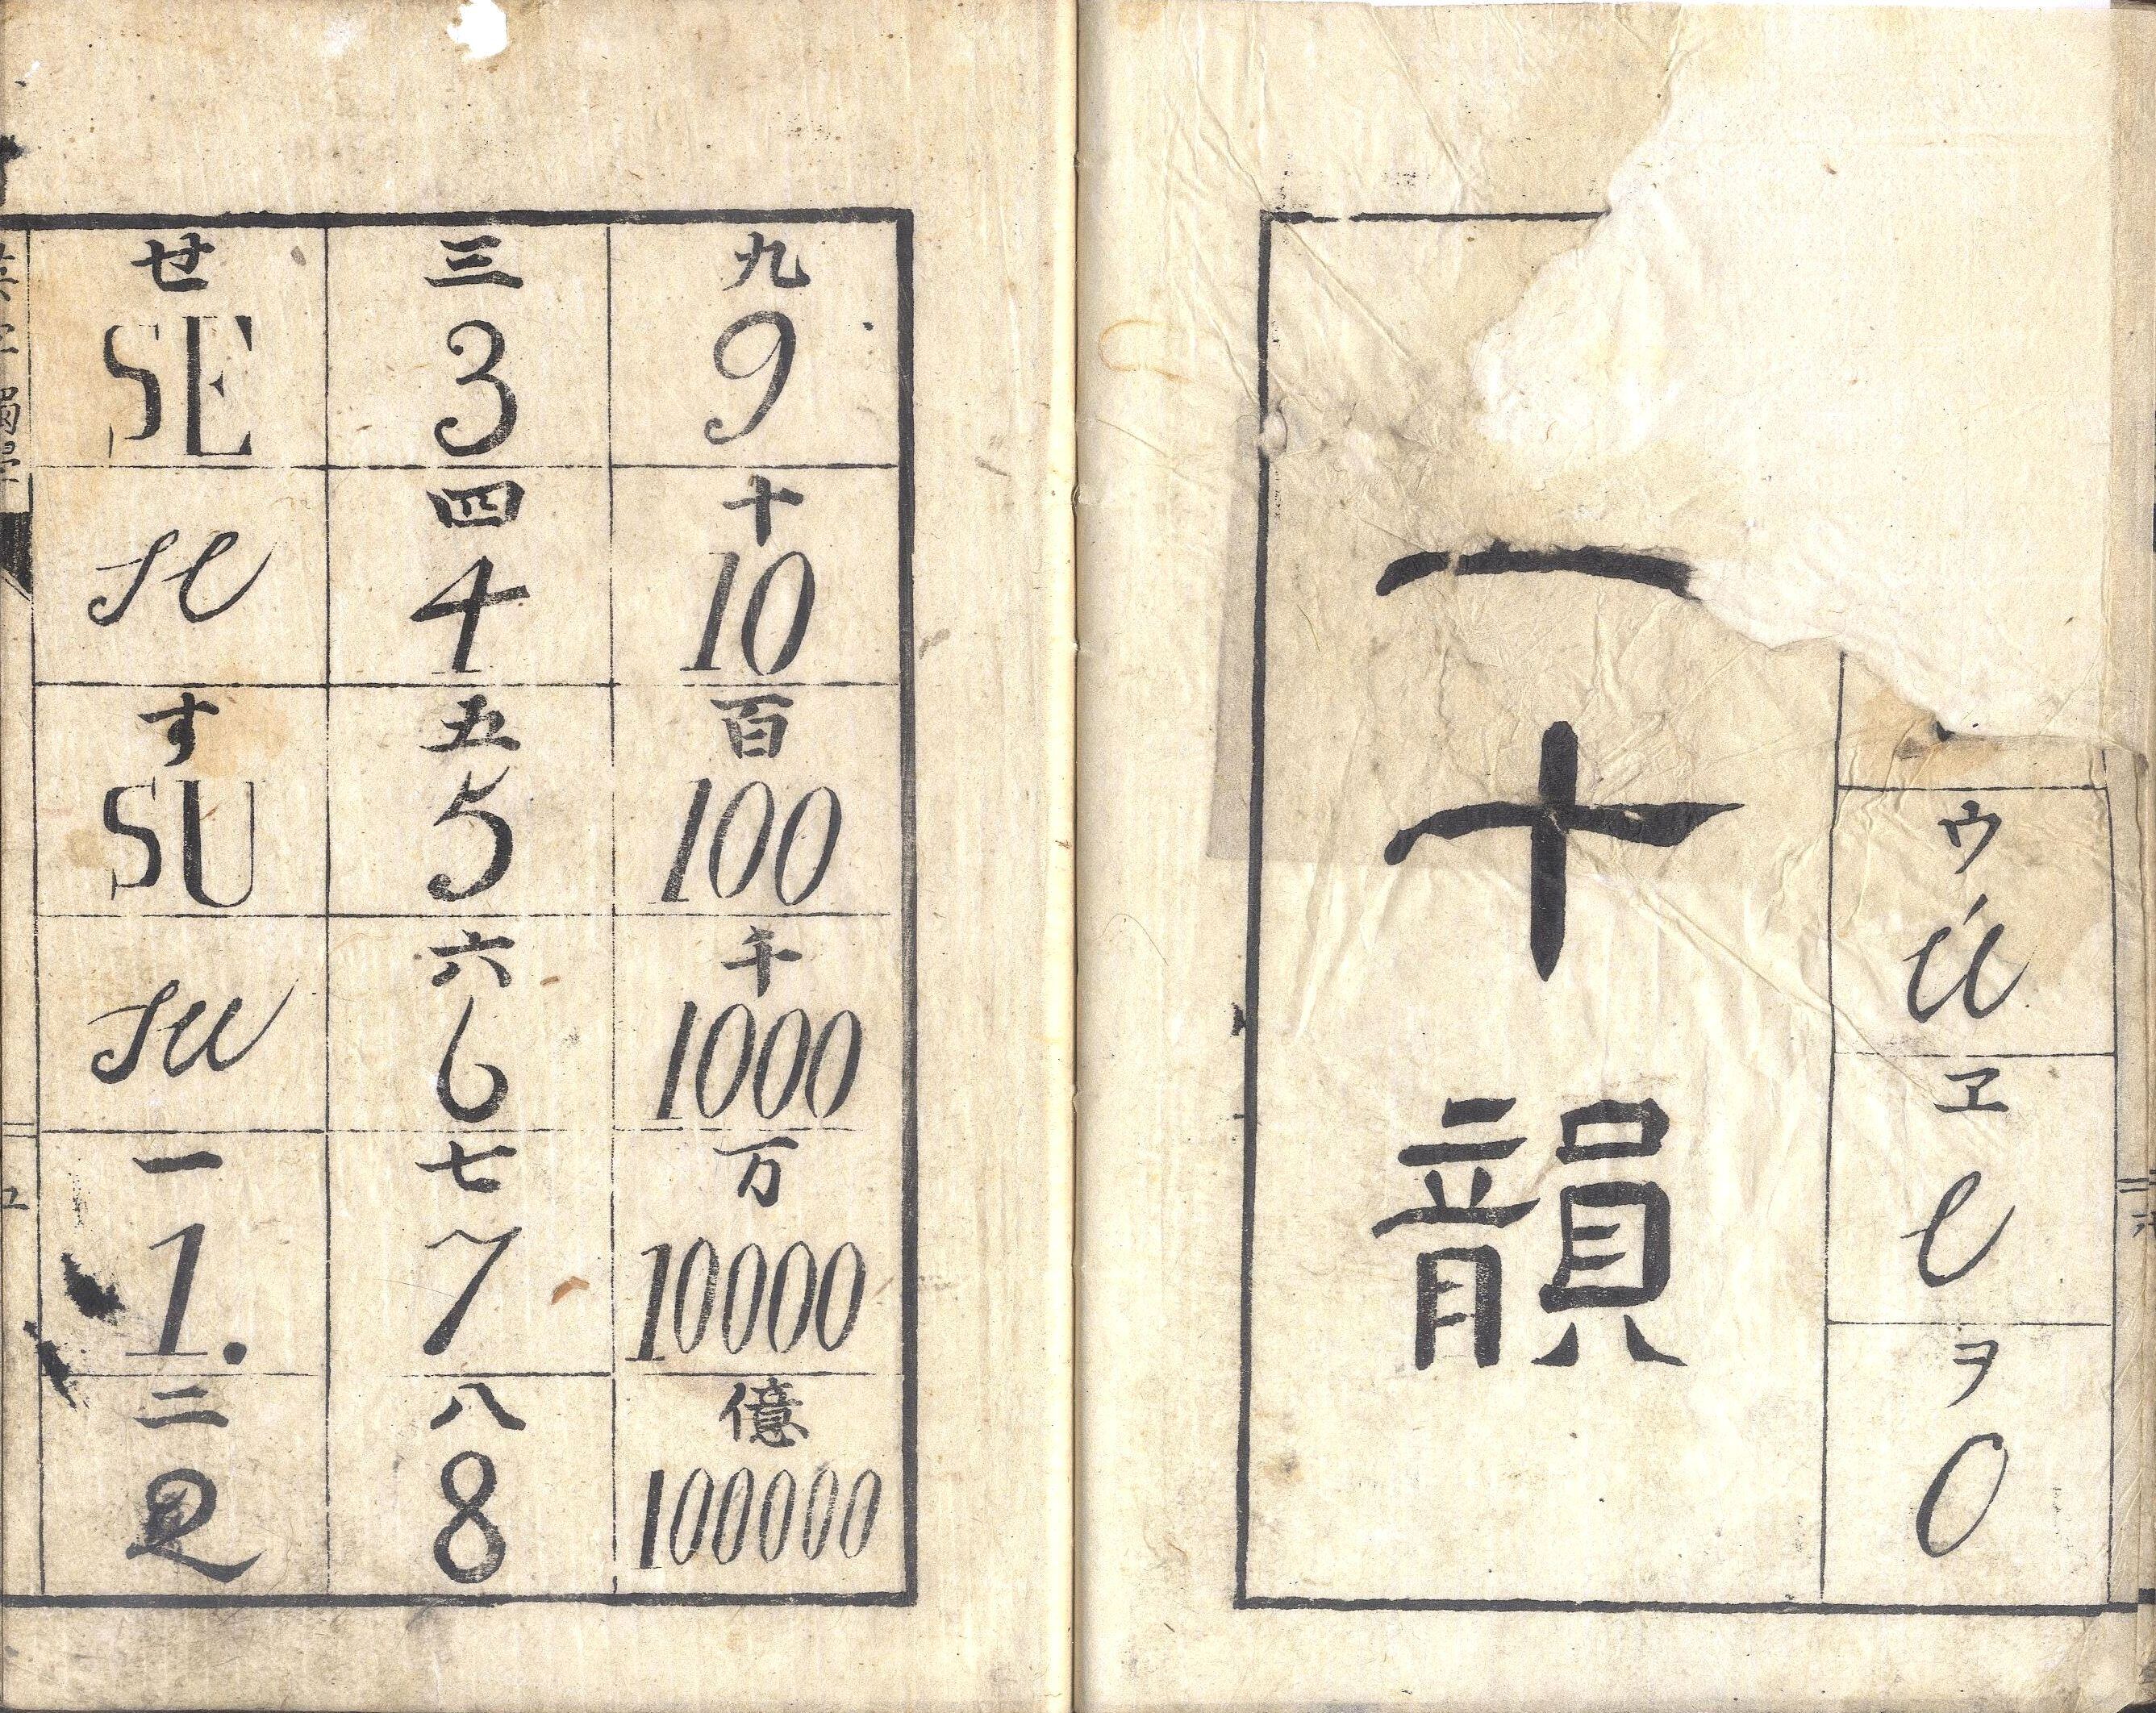 せ
SE
se
す
SU
su
一
1.
二
2
三
3
四
4
五
5
六
6
七
7
八
8
九
9
十
10
百
100
千
1000
万
10000
億
100000
十韻
ウ
u
ヱ
e
ヲ
o